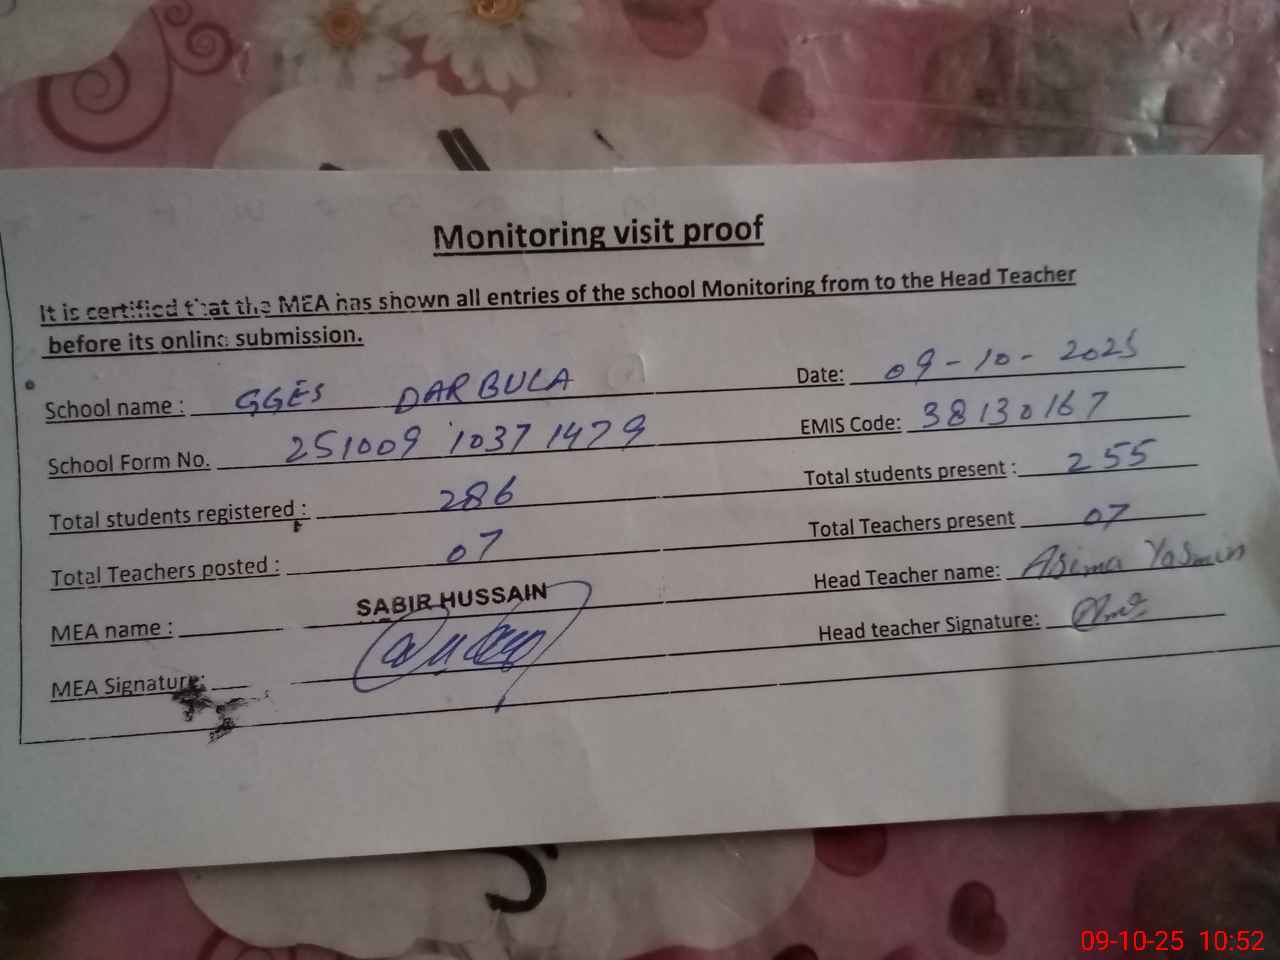 Monitoring visit proof
It is certified that the MEA has shown all entries of the school Monitoring from to the Head Teacher
before its online submission.
School name : GGES DARBULA Date: 09-10-2025
School Form No. 251009 10371479 EMIS Code: 38130167
Total students registered : 286 Total students present : 255
Total Teachers posted : 07 Total Teachers present 07
MEA name : SABIR HUSSAIN Head Teacher name: Asima Yasmin
MEA Signature: Head teacher Signature:
09-10-25 10:52